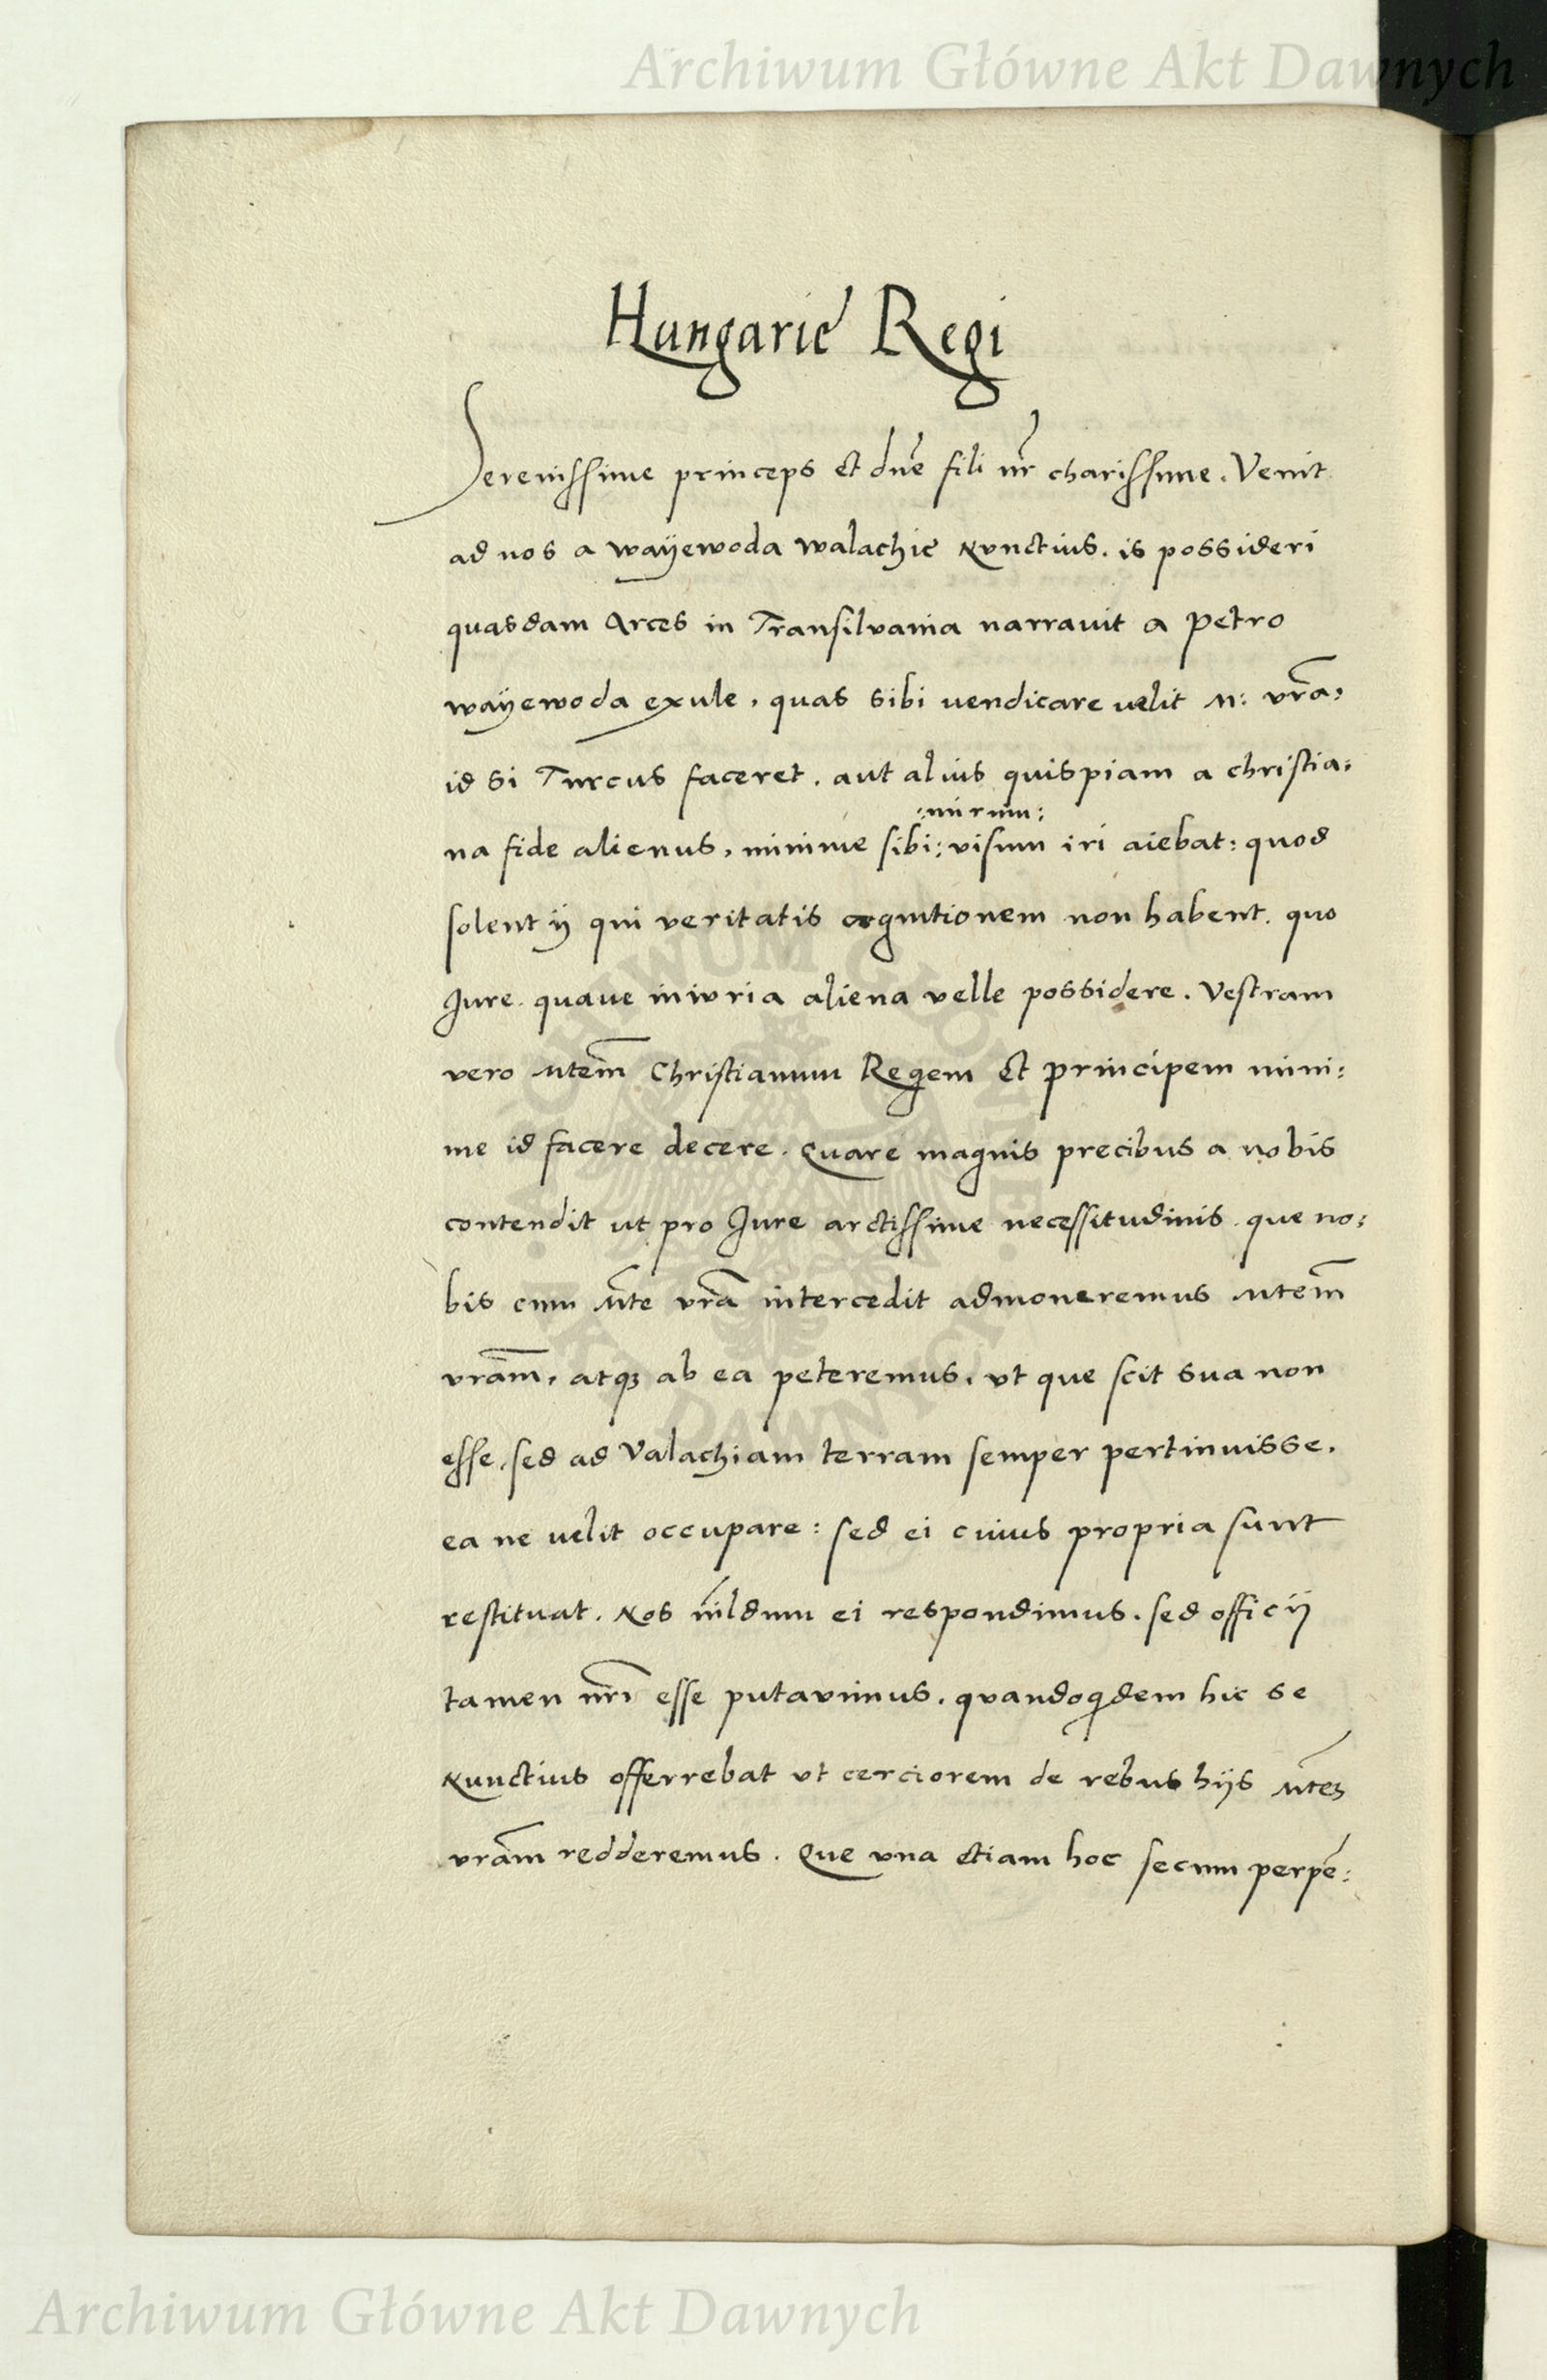 Archiwum Główne Akt Dawnych
Hungarie Regi
Serenissime princeps et dne fili nr charissime. Venit
ad nos a wayewoda walachie Nunctius. is possideri
quasdam Arces in Transilvania narravit a Petro
wayewoda exule, quas sibi vendicare velit M: vra,
id si Turcus faceret. aut alius quispiam a christia:
:mirum:
na fide alienus, minime sibi: visum iri aiebat: quod
solent ij qui veritatis cognitionem non habent. quo
Jure. quave iniuria aliena velle possidere. Vestram
vero Mtem Christianum Regem et principem mini:
me id facere decere. Quare magnis precibus a nobis
contendit ut pro Jure arctissime necessitudinis. que no:
bis cum Mte vra intercedit admoneremus Mtem
vram, atq; ab ea peteremus, vt que scit sua non
esse, sed ad Valachiam terram semper pertinuisse.
ea ne velit occupare: sed ei cuius propria sunt
restituat. Nos nildum ei respondimus. sed officij
tamen nri esse putavimus. quandoqdem hic se
Nunctius offerrebat vt cerciorem de rebus hijs Mtez
vram redderemus. Que una etiam hoc secum perpe:
ARCHIWUM GŁÓWNE AKT DAWNYCH
Archiwum Główne Akt Dawnych